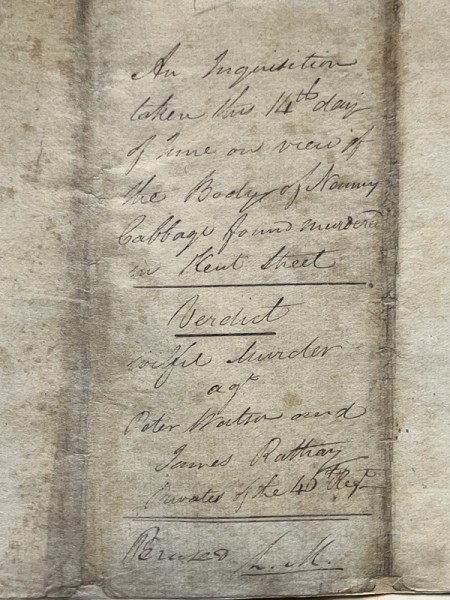 An Inquisition
taken this 14th day
of June on view of
the Body of Nanny
Cabbage found murdered
in Kent Street
Verdict
wilful Murder
agt
Peter Watson and
James Rattray
Privates of the 46th Regt
Perused